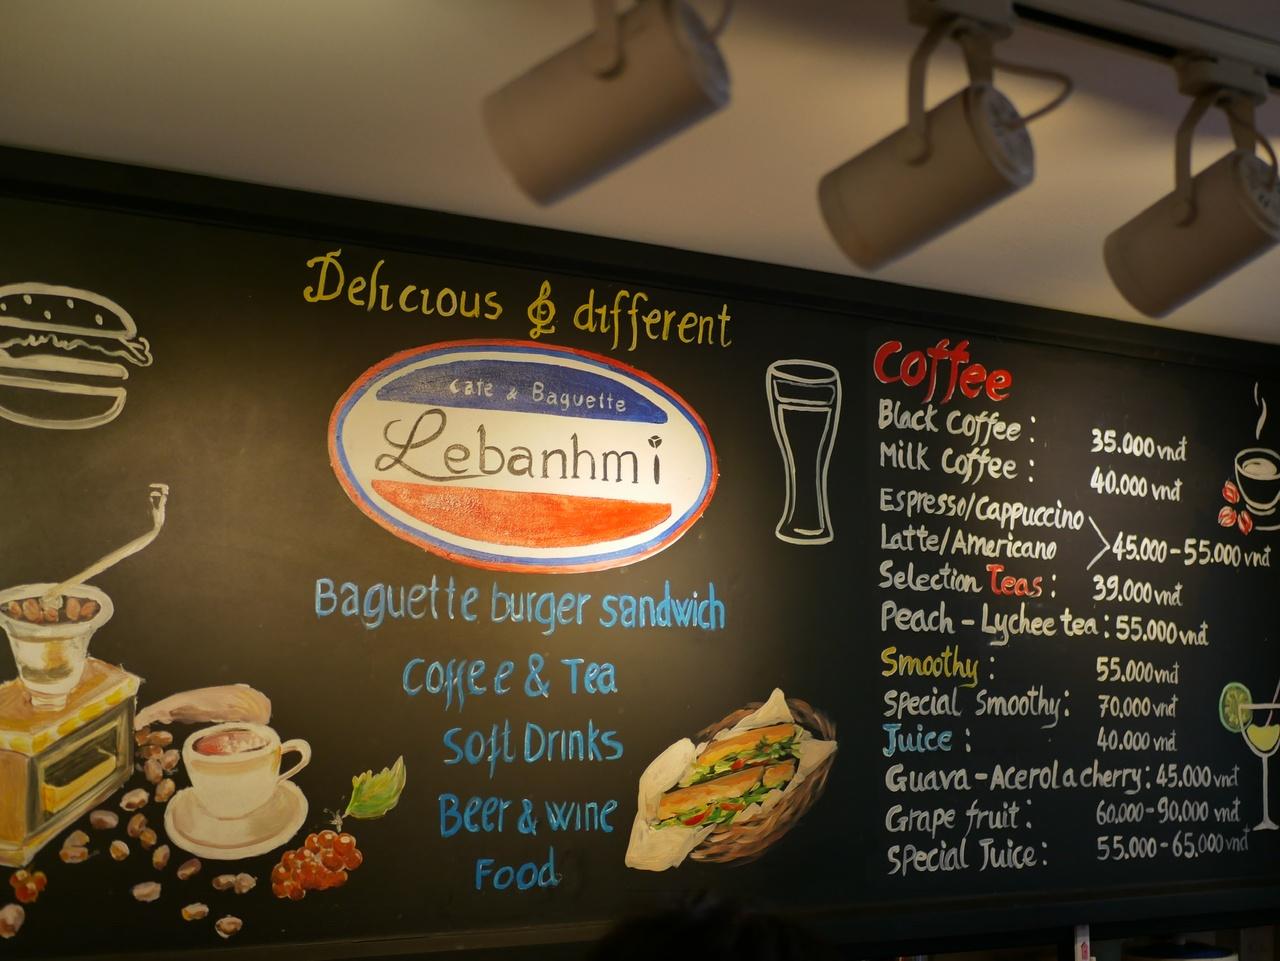 Delicious & different
Cafe & Baguette
Lebanhmi
Baguette burger sandwich
Coffee & Tea
Soft Drinks
Beer & wine
Food
Coffee
Black Coffee : 35.000 vnđ
Milk Coffee : 40.000 vnđ
Espresso/Cappuccino
Latte/Americano 45.000-55.000 vnđ
Selection Teas : 39.000 vnđ
Peach - Lychee tea : 55.000 vnđ
Smoothy : 55.000 vnđ
Special Smoothy : 70.000 vnđ
Juice : 40.000 vnđ
Guava - Acerola cherry : 45.000 vnđ
Grape fruit : 60.000-90.000 vnđ
Special Juice : 55.000-65.000 vnđ